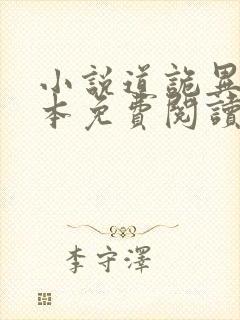 小說道詭異
本免費閱讀
李守澤